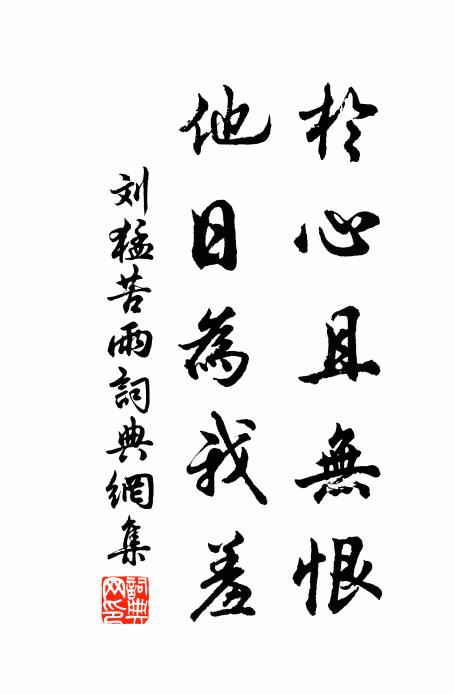 於心且無恨
他日為我羞
刘猛苦雨詞典網集
詞典網印